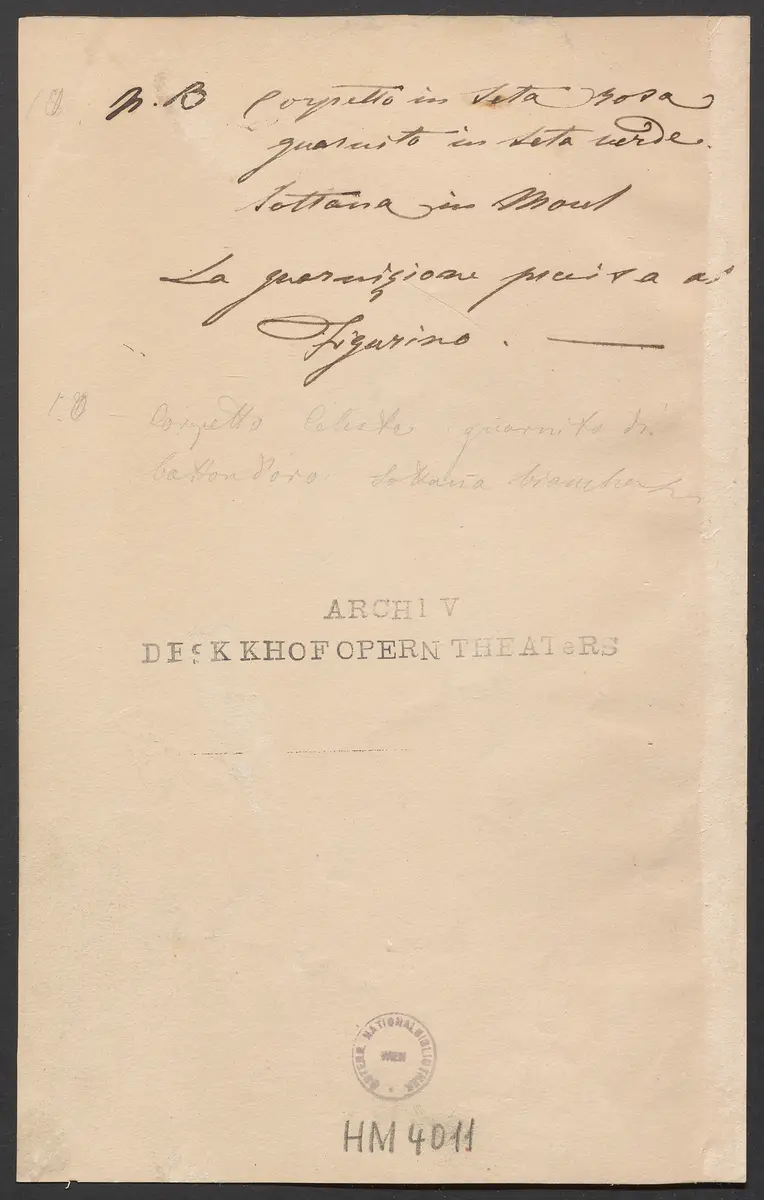 N. B Corpetto in Seta rosa
guarnito in seta verde.
Sottana in Moul
La guarnizione precisa al
Figurino. —
Corpetto Celeste guarnito di
Sottana
ARCHIV
DES K KHOFOPERN THEATeRS
ÖSTERR. NATIONALBIBLIOTHEK
WIEN
HM 4011